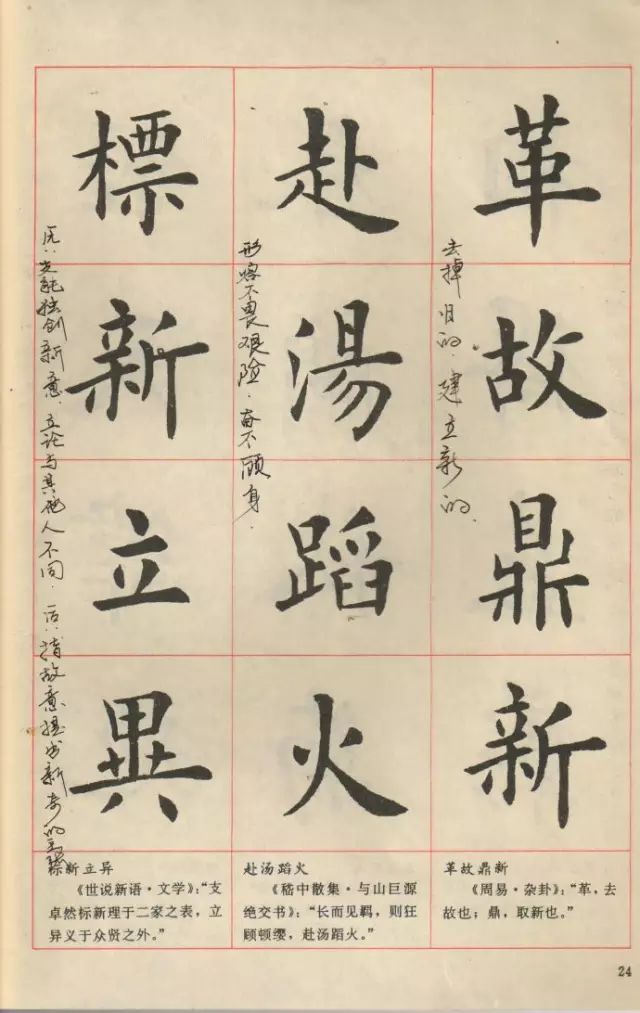 革故鼎新
去掉旧的，建立新的。
赴湯蹈火
形容不畏艰险，奋不顾身。
標新立異
独创新意，立论与其他人不同。
指故意提出新奇的主张
革故鼎新
《周易·杂卦》：“革，去
故也；鼎，取新也。”
赴汤蹈火
《嵇中散集·与山巨源
绝交书》：“长而见羁，则狂
顾顿缨，赴汤蹈火。”
标新立异
《世说新语·文学》：“支
卓然标新理于二家之表，立
异义于众贤之外。”
24